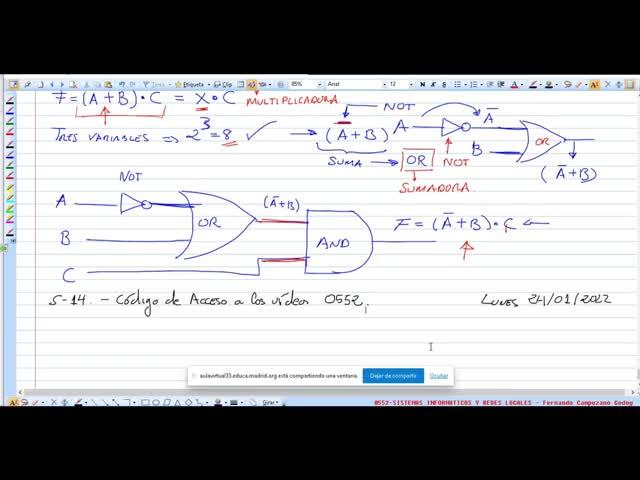 Etiqueta Clip 85% Arial 12 N
F = (A + B) • C = X • C MULTIPLICADORA.
NOT
TRES VARIABLES ⇒ 2³ = 8 ✓ → (A̅ + B) A A̅
OR
SUMA → OR NOT B (A̅ + B)
SUMADORA.
NOT
A (A̅ + B)
OR F = (A̅ + B) • C ←
B AND
C
S-14. - Código de Acceso a los vídeos 0552. LUNES 24/01/2022
aulavirtual33.educa.madrid.org está compartiendo una ventana. Dejar de compartir Ocultar
Girar
0552-SISTEMAS INFORMATICOS Y REDES LOCALES - Fernando Campuzano Godoy